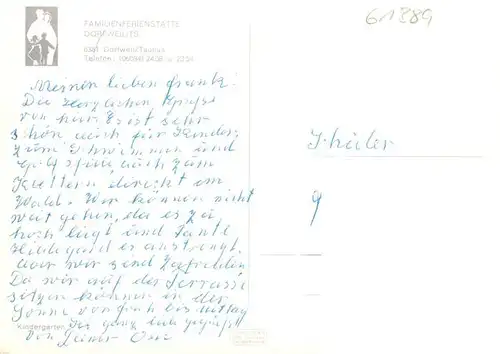 61389
FAMILIENFERIENSTÄTTE
DORFWEIL/TS
6381 Dorfweil/Taunus
Meinen lieben Frank!
Die herzlichen Grüße
von hier. Es ist sehr
schön auch für Kinder,
zum Schwimmen und
auch zum
Klettern direkt am
Wald. Wir können nicht
weit gehen, da es zu
hoch liegt und Tante
Hildegard es anstrengt.
Aber wir sind zufrieden
Da wir auf der Terrasse
sitzen können in der
Sonne von früh bis mittag
Kindergarten Sei ganz lieb gegrüßt
von Deiner Omi
Thäler
9